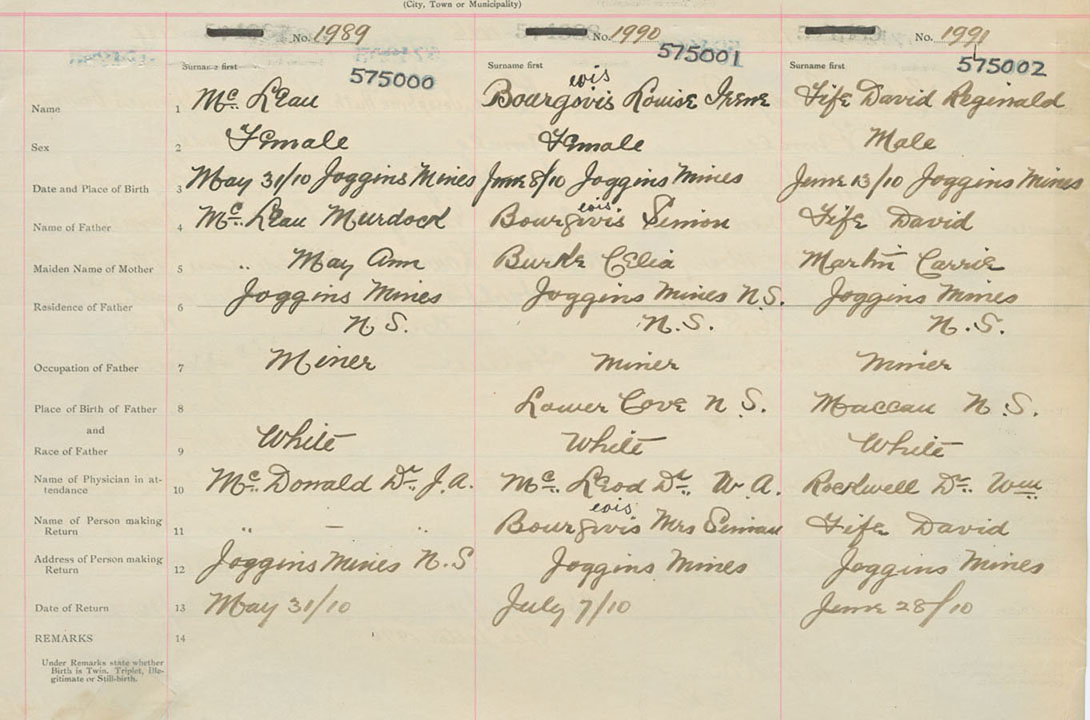 (City, Town or Municipality)
No. 1989 No. 1990 No. 1991
Surname first 575000 Surname first 575001 Surname first 575002
eois
Name 1 Mc. Leau Bourgovis Louise Irene Fife David Reginald
Sex 2 Female Female Male
Date and Place of Birth 3 May 31/10 Joggins Mines June 8/10 Joggins Mines June 13/10 Joggins Mines
eois
Name of Father 4 Mc. Leau Murdock Bourgovis Simon Fife David
Maiden Name of Mother 5 " May Ann Burke Celia Martin Carrie
Residence of Father 6 Joggins Mines Joggins Mines N.S. Joggins Mines
N.S. N.S. N.S.
Occupation of Father 7 Miner Miner Miner
Place of Birth of Father 8 Lower Cove N.S. Maccan N.S.
and
Race of Father 9 White White White
Name of Physician in at-
tendance 10 Mc. Donald Dr. J.A. Mc. Leod Dr. W.A. Rockwell Dr. Wm
eois
Name of Person making
Return 11 " — " Bourgovis Mrs Simon Fife David
Address of Person making
Return 12 Joggins Mines N.S Joggins Mines Joggins Mines
Date of Return 13 May 31/10 July 7/10 June 28/10
REMARKS 14
Under Remarks state whether
Birth is Twin, Triplet, Ille-
gitimate or Still-birth.